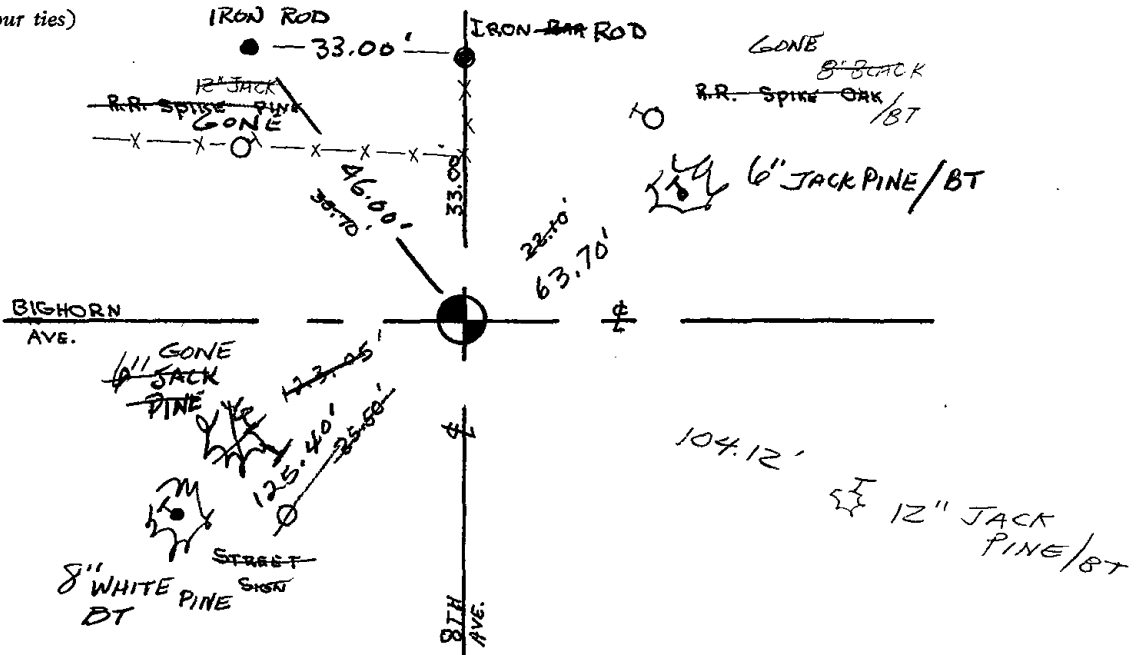 our ties)
IRON ROD
33.00'
IRON BAR ROD
12" JACK
R.R. SPIKE PINE
GONE
GONE
8" BLACK
R.R. SPIKE OAK
/BT
6" JACK PINE/BT
46.00'
33.00
22.10'
63.70'
BIGHORN
AVE.
℄
GONE
6" JACK
PINE
123.05'
125.40'
25.50'
℄
104.12'
12" JACK
PINE/BT
STREET
SIGN
8" WHITE PINE
BT
8TH
AVE.